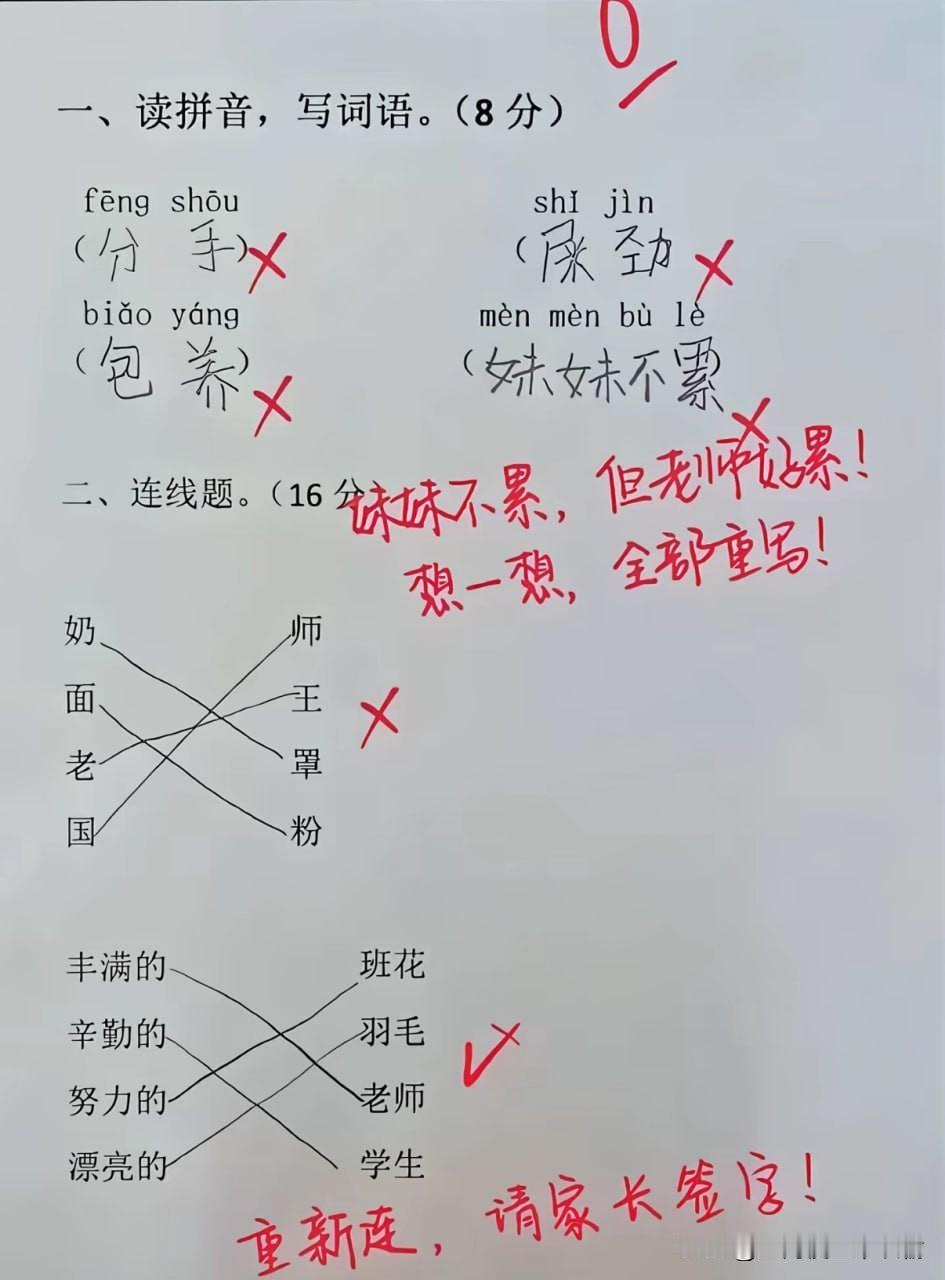 0
一、读拼音，写词语。（8 分）
fēng shōu shǐ jìn
（分 手） （屎 劲
biǎo yáng mèn mèn bù lè
（包 养） （妹妹不累）
二、连线题。（16 分）
妹妹不累，但老师好累！
想一想，全部重写！
奶 师
面 王
老 罩
国 粉
丰满的 班花
辛勤的 羽毛
努力的 老师
漂亮的 学生
重新连，请家长签字！